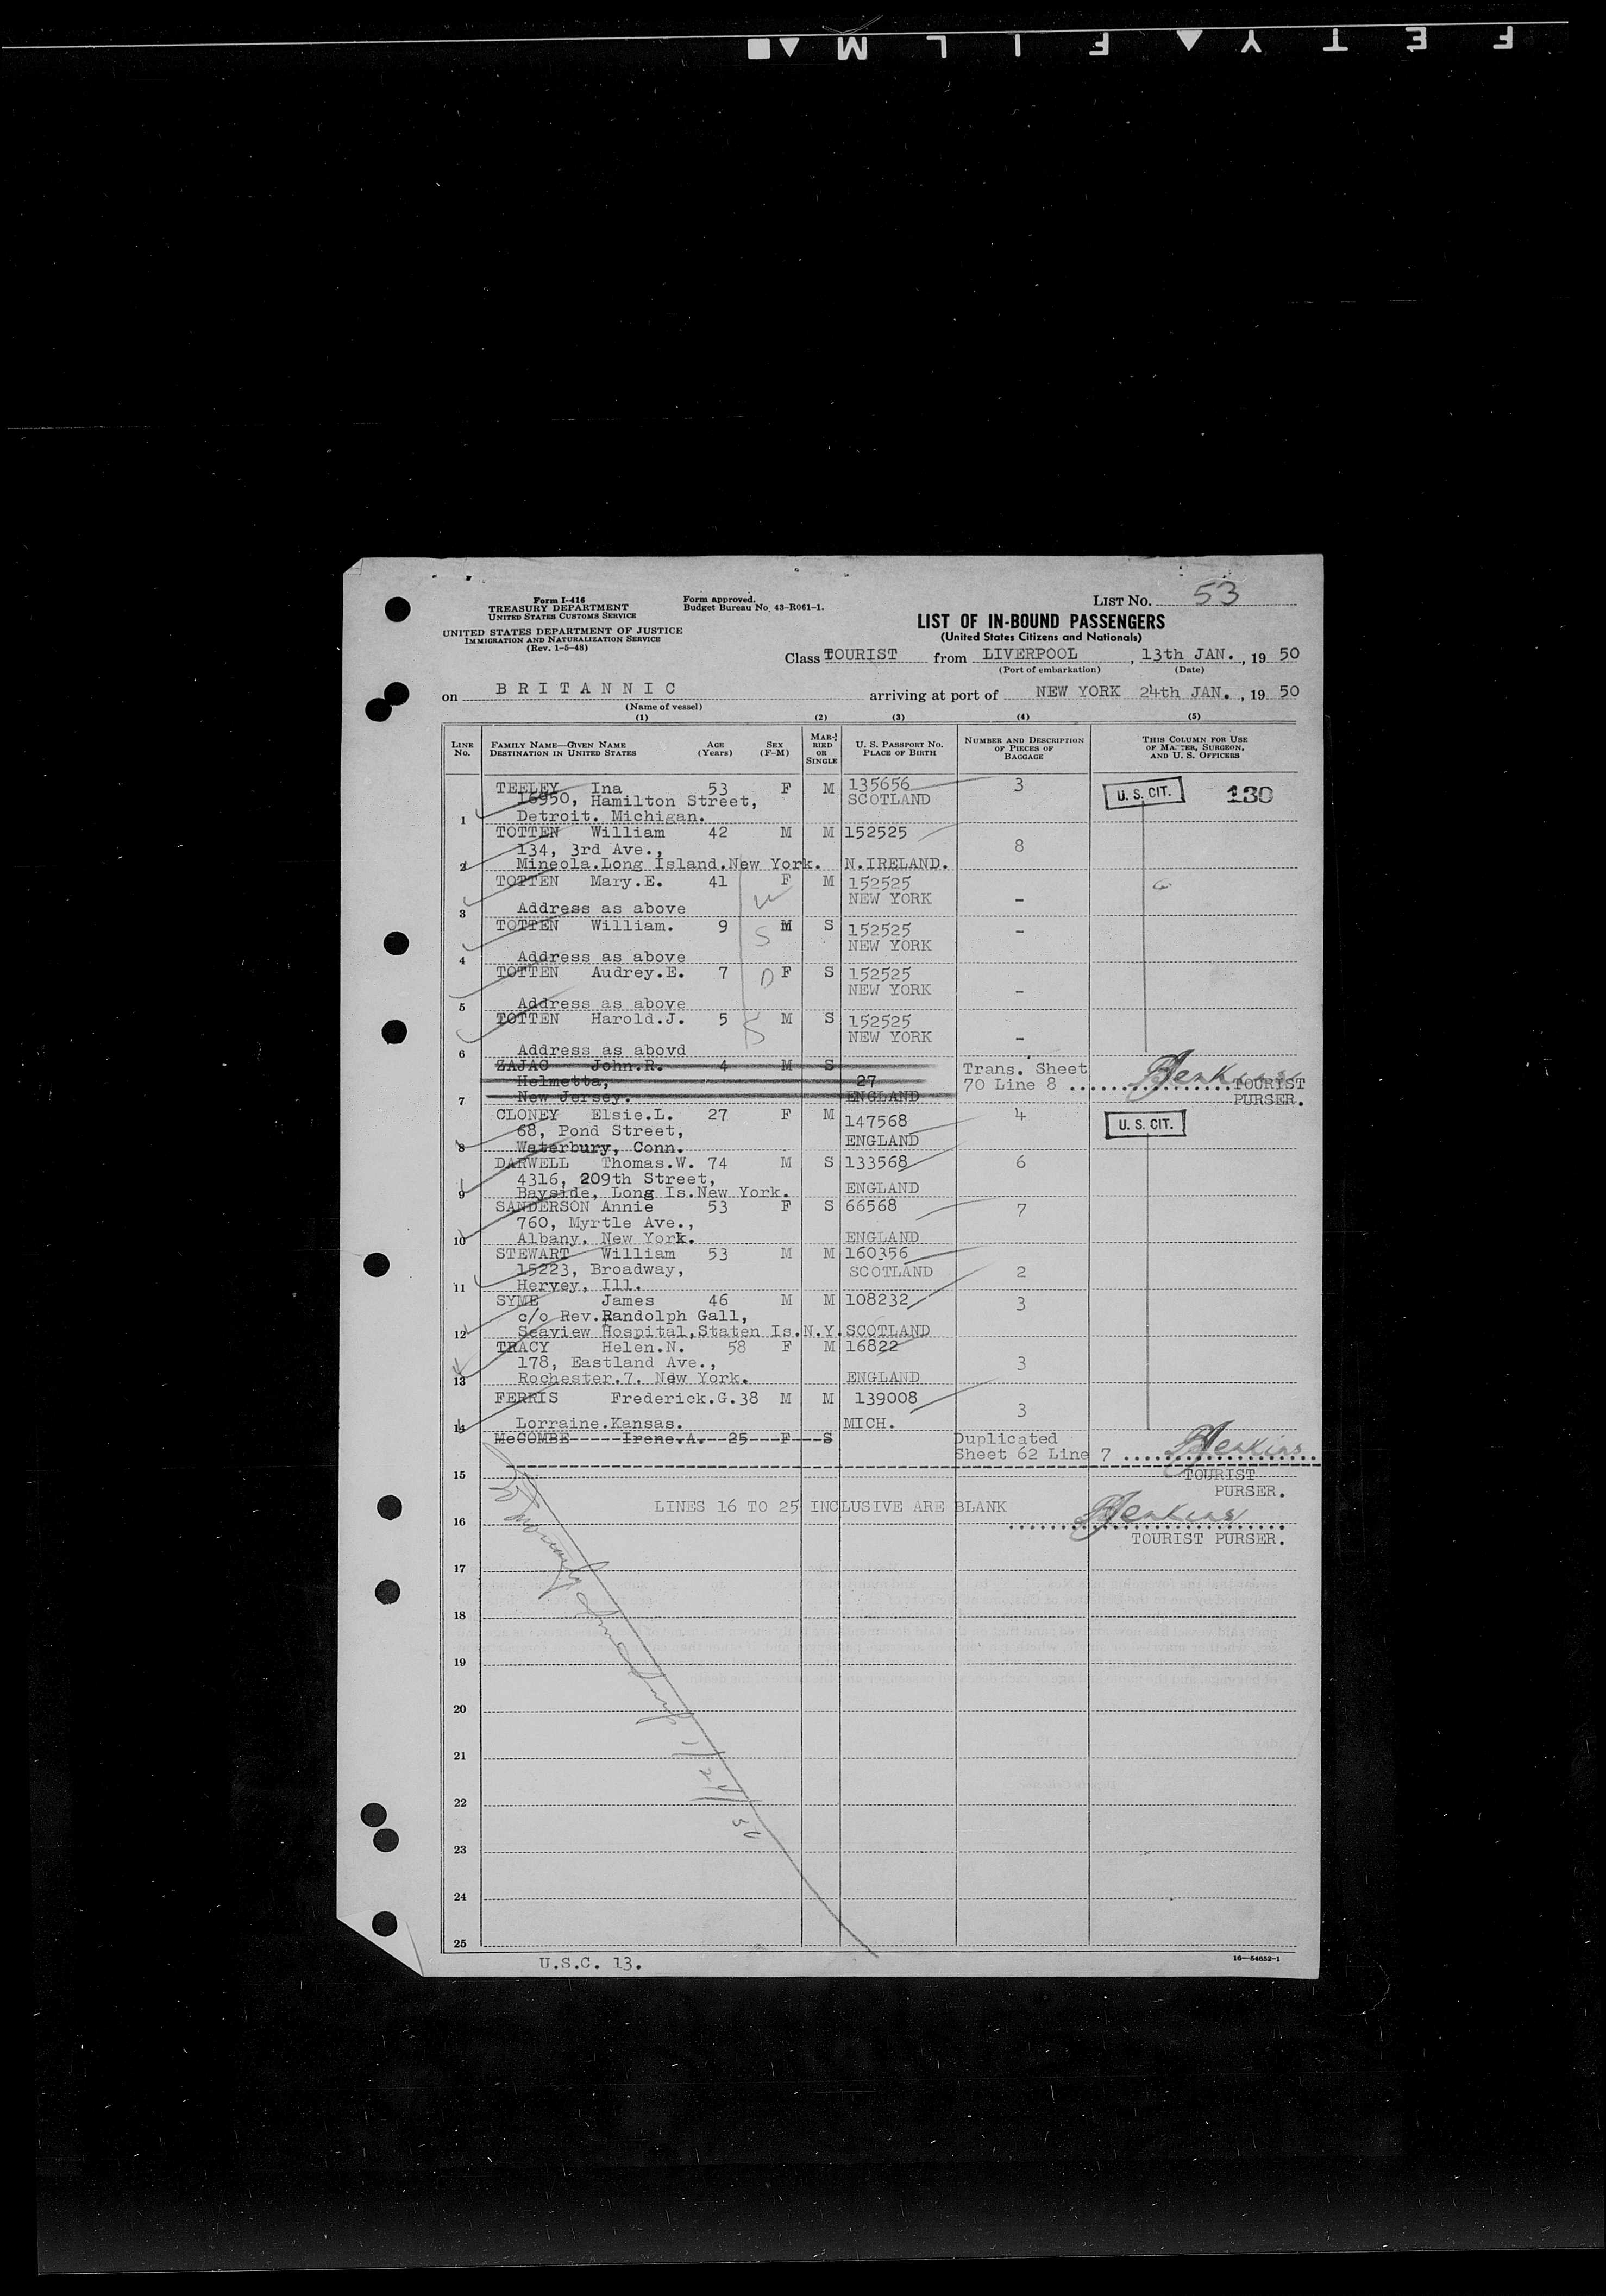 F E T Y ▲ F I L M ▲ ■
Form I-416
TREASURY DEPARTMENT
UNITED STATES CUSTOMS SERVICE
UNITED STATES DEPARTMENT OF JUSTICE
IMMIGRATION AND NATURALIZATION SERVICE
(Rev. 1-5-48)
Form approved.
Budget Bureau No. 43-R061-1.
LIST NO. 53
LIST OF IN-BOUND PASSENGERS
(United States Citizens and Nationals)
Class TOURIST from LIVERPOOL, 13th JAN., 19 50
(Port of embarkation) (Date)
on BRITANNIC arriving at port of NEW YORK 24th JAN., 19 50
(Name of vessel)
(1) (2) (3) (4) (5)
LINE NO. FAMILY NAME—GIVEN NAME DESTINATION IN UNITED STATES AGE (Years) SEX (F-M) MARRIED OR SINGLE U. S. PASSPORT NO. PLACE OF BIRTH NUMBER AND DESCRIPTION OF PIECES OF BAGGAGE THIS COLUMN FOR USE OF MASTER, SURGEON, AND U. S. OFFICERS
TEELEY Ina 53 F M 135656 3 U. S. CIT. 130
16950, Hamilton Street, SCOTLAND
1 Detroit. Michigan.
TOTTEN William 42 M M 152525
134, 3rd Ave., 8
2 Mineola.Long Island.New York. N.IRELAND.
TOTTEN Mary.E. 41 F M 152525
W NEW YORK -
3 Address as above
TOTTEN William. 9 M S 152525 -
S NEW YORK
4 Address as above
TOTTEN Audrey.E. 7 D F S 152525
NEW YORK -
5 Address as above
TOTTEN Harold.J. 5 M S 152525
S NEW YORK -
6 Address as abovd
ZAJAC John.R. 4 M S Trans. Sheet
Helmetta, 27 70 Line 8 ........ Jenkins TOURIST
7 New Jersey. ENGLAND PURSER.
CLONEY Elsie.L. 27 F M 147568 4 U. S. CIT.
68, Pond Street,
8 Waterbury, Conn. ENGLAND
DARWELL Thomas.W. 74 M S 133568 6
4316, 209th Street,
9 Bayside, Long Is.New York. ENGLAND
SANDERSON Annie 53 F S 66568 7
760, Myrtle Ave.,
10 Albany, New York. ENGLAND
STEWART William 53 M M 160356
15223, Broadway, SCOTLAND 2
11 Hervey, Ill.
SYME James 46 M M 108232 3
c/o Rev.Randolph Gall,
12 Seaview Hospital,Staten Is.N.Y. SCOTLAND
TRACY Helen.N. 58 F M 16822
178, Eastland Ave., 3
13 Rochester.7. New York. ENGLAND
FERRIS Frederick.G. 38 M M 139008
3
14 Lorraine.Kansas. MICH.
McCOMBE Irene.A. 25 F S Duplicated
Sheet 62 Line 7 ........ Jenkins
15 TOURIST
PURSER.
LINES 16 TO 25 INCLUSIVE ARE BLANK Jenkins
16
TOURIST PURSER.
17
18
19
20
21
1/24/50
22
23
24
25
U.S.C. 13.
16—54652-1